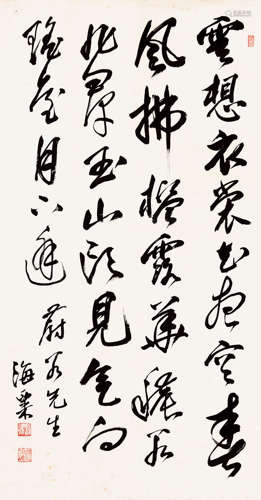 雲想衣裳花想容春
風拂檻露華穠若
非羣玉山頭見會向
瑤臺月下逢
蔚先生
海粟